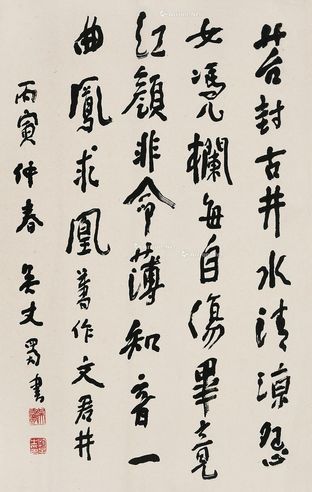 苔封古井水清涼怨
女憑欄每自傷畢竟
紅顏非命薄知音一
曲鳳求凰舊作文君井
丙寅仲春吳丈蜀書